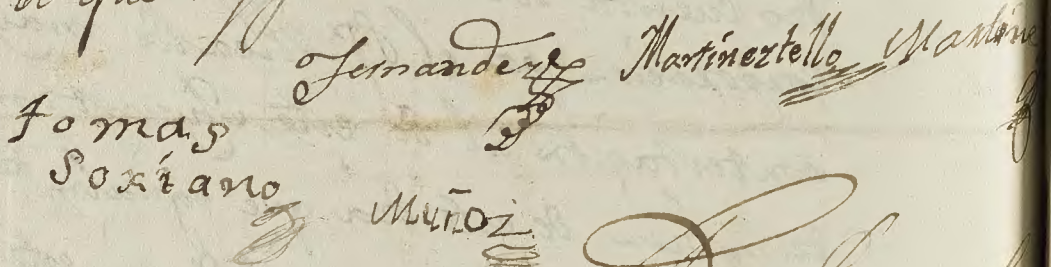 de que
Fernandez Martineztello Martine
tomas
Soriano
Muñoz